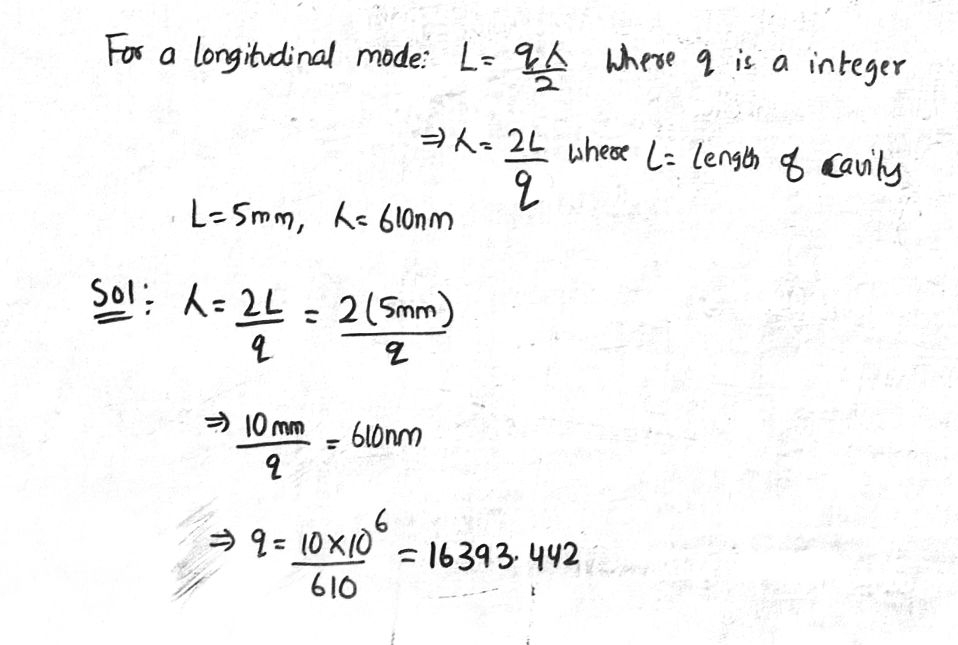 For a longitudinal mode: L = qλ/2 where q is a integer
⇒ λ = 2L/q where L = length of cavity
L = 5mm, λ = 610nm
Sol: λ = 2L/q = 2(5mm)/q
⇒ 10mm/q = 610nm
⇒ q = 10×10^6/610 = 16393.442